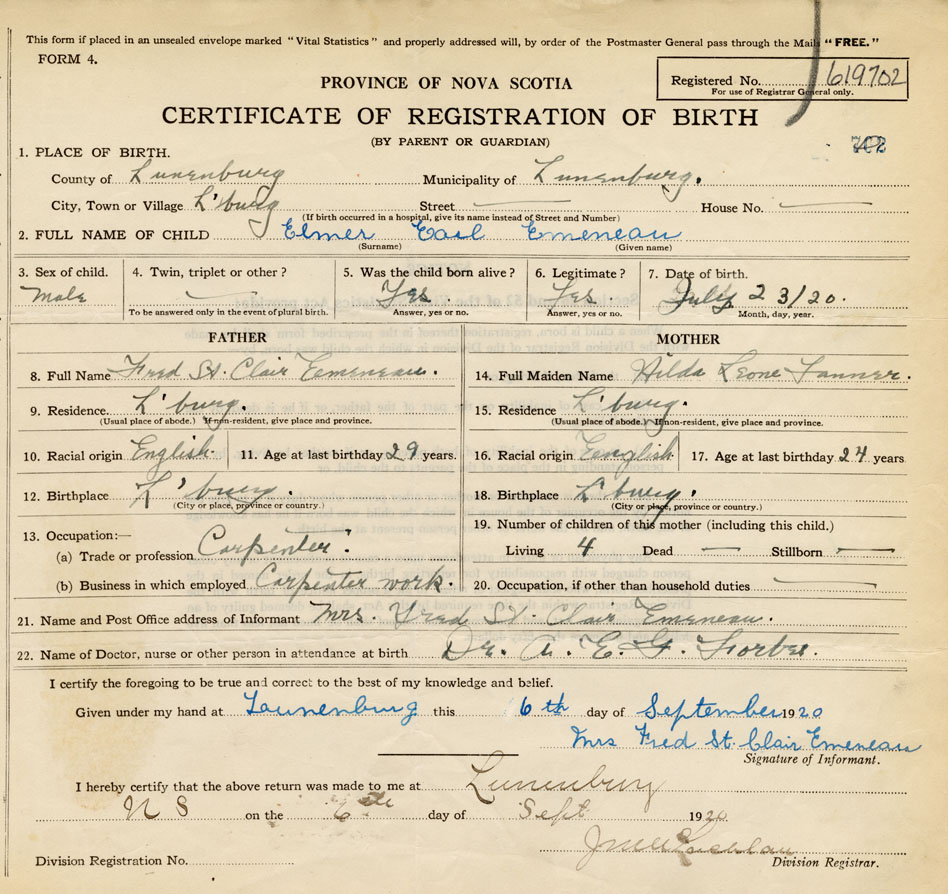 This form if placed in an unsealed envelope marked "Vital Statistics" and properly addressed will, by order of the Postmaster General pass through the Mails "FREE."
FORM 4.
PROVINCE OF NOVA SCOTIA
Registered No. 619702
For use of Registrar General only.
CERTIFICATE OF REGISTRATION OF BIRTH
(BY PARENT OR GUARDIAN)
702
1. PLACE OF BIRTH.
County of Lunenburg Municipality of Lunenburg.
City, Town or Village L'burg Street — House No. —
(If birth occurred in a hospital, give its name instead of Street and Number)
2. FULL NAME OF CHILD Elmer Earl Emeneau
(Surname) (Given name)
3. Sex of child. 4. Twin, triplet or other? 5. Was the child born alive? 6. Legitimate? 7. Date of birth.
Male — Yes Yes. July 23/20.
To be answered only in the event of plural birth. Answer, yes or no. Answer, yes or no. Month, day, year.
FATHER MOTHER
8. Full Name Fred St. Clair Emeneau. 14. Full Maiden Name Hilda Leone Tanner.
9. Residence. L'burg. 15. Residence L'burg.
(Usual place of abode.) If non-resident, give place and province. (Usual place of abode.) If non-resident, give place and province.
10. Racial origin English 11. Age at last birthday 29 years. 16. Racial origin English 17. Age at last birthday 24 years
12. Birthplace L'burg. 18. Birthplace L'burg.
(City or place, province or country.) (City or place, province or country.)
13. Occupation:— 19. Number of children of this mother (including this child.)
(a) Trade or profession Carpenter. Living 4 Dead — Stillborn —
(b) Business in which employed Carpenter work. 20. Occupation, if other than household duties —
21. Name and Post Office address of Informant Mrs. Fred St. Clair Emeneau.
22. Name of Doctor, nurse or other person in attendance at birth Dr. A. E. G. Forbes.
I certify the foregoing to be true and correct to the best of my knowledge and belief.
Given under my hand at Lunenburg this 6th day of September 1920
Mrs Fred St. Clair Emeneau
Signature of Informant.
I hereby certify that the above return was made to me at Lunenburg
N S on the 6th day of Sept 1920
Division Registration No. Division Registrar.